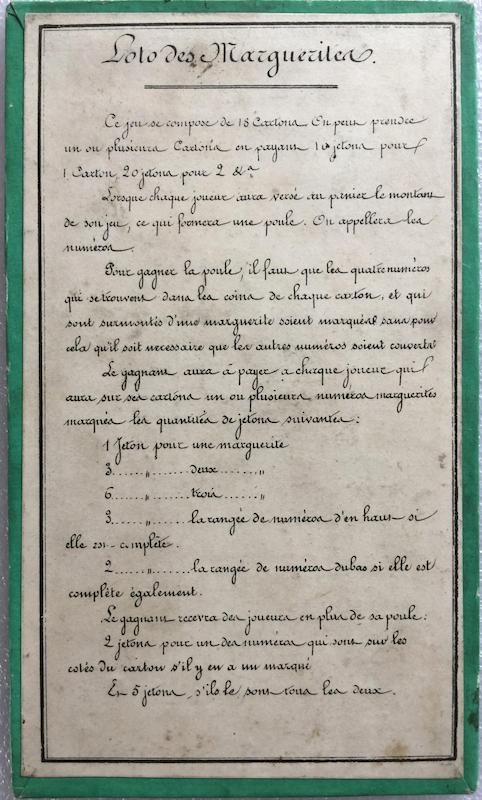 Loto des Marguerites.
Ce jeu se compose de 18 Cartons On peut prendre
un ou plusieurs Cartons en payant 10 jetons pour
1 Carton, 20 jetons pour 2 &a
Lorsque chaque joueur aura versé au panier le montant
de son jeu, ce qui formera une poule. On appellera les
numéros.
Pour gagner la poule, il faut que les quatre numéros
qui se trouvent dans les coins de chaque carton, et qui
sont surmontés d'une marguerite soient marqués sans pour
cela qu'il soit necessaire que les autres numéros soient couverts
Le gagnant aura à payer a chaque joueur qui
aura sur ses cartons un ou plusieurs numéros marguerites
marqués les quantités de jetons suivantes:
1 Jeton pour une marguerite
3......„.......deux......„
6......„.......trois......„
3......„.......la rangée de numéros d'en haut si
elle est complète.
2......„.......la rangée de numéros du bas si elle est
complète également.
Le gagnant recevra des joueurs en plus de sa poule:
2 jetons pour un des numéros qui sont sur les
cotés du carton s'il y en a un marqué
Et 5 jetons, s'ils le sont tous les deux.